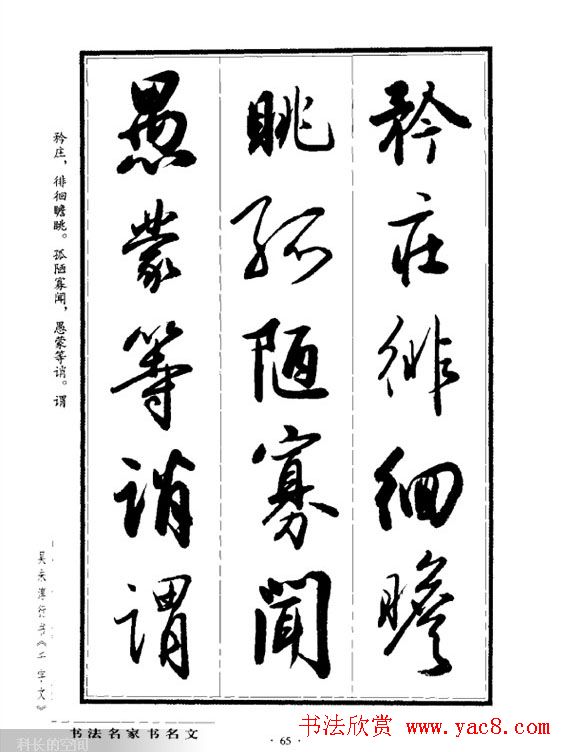 矜庄徘徊瞻
眺孤陋寡闻
愚蒙等诮谓
矜庄，徘徊瞻眺。孤陋寡闻，愚蒙等诮。谓
吴未淳行书《千字文》
书法名家书名文
·65·
书法欣赏 www.yac8.com
科长的空间